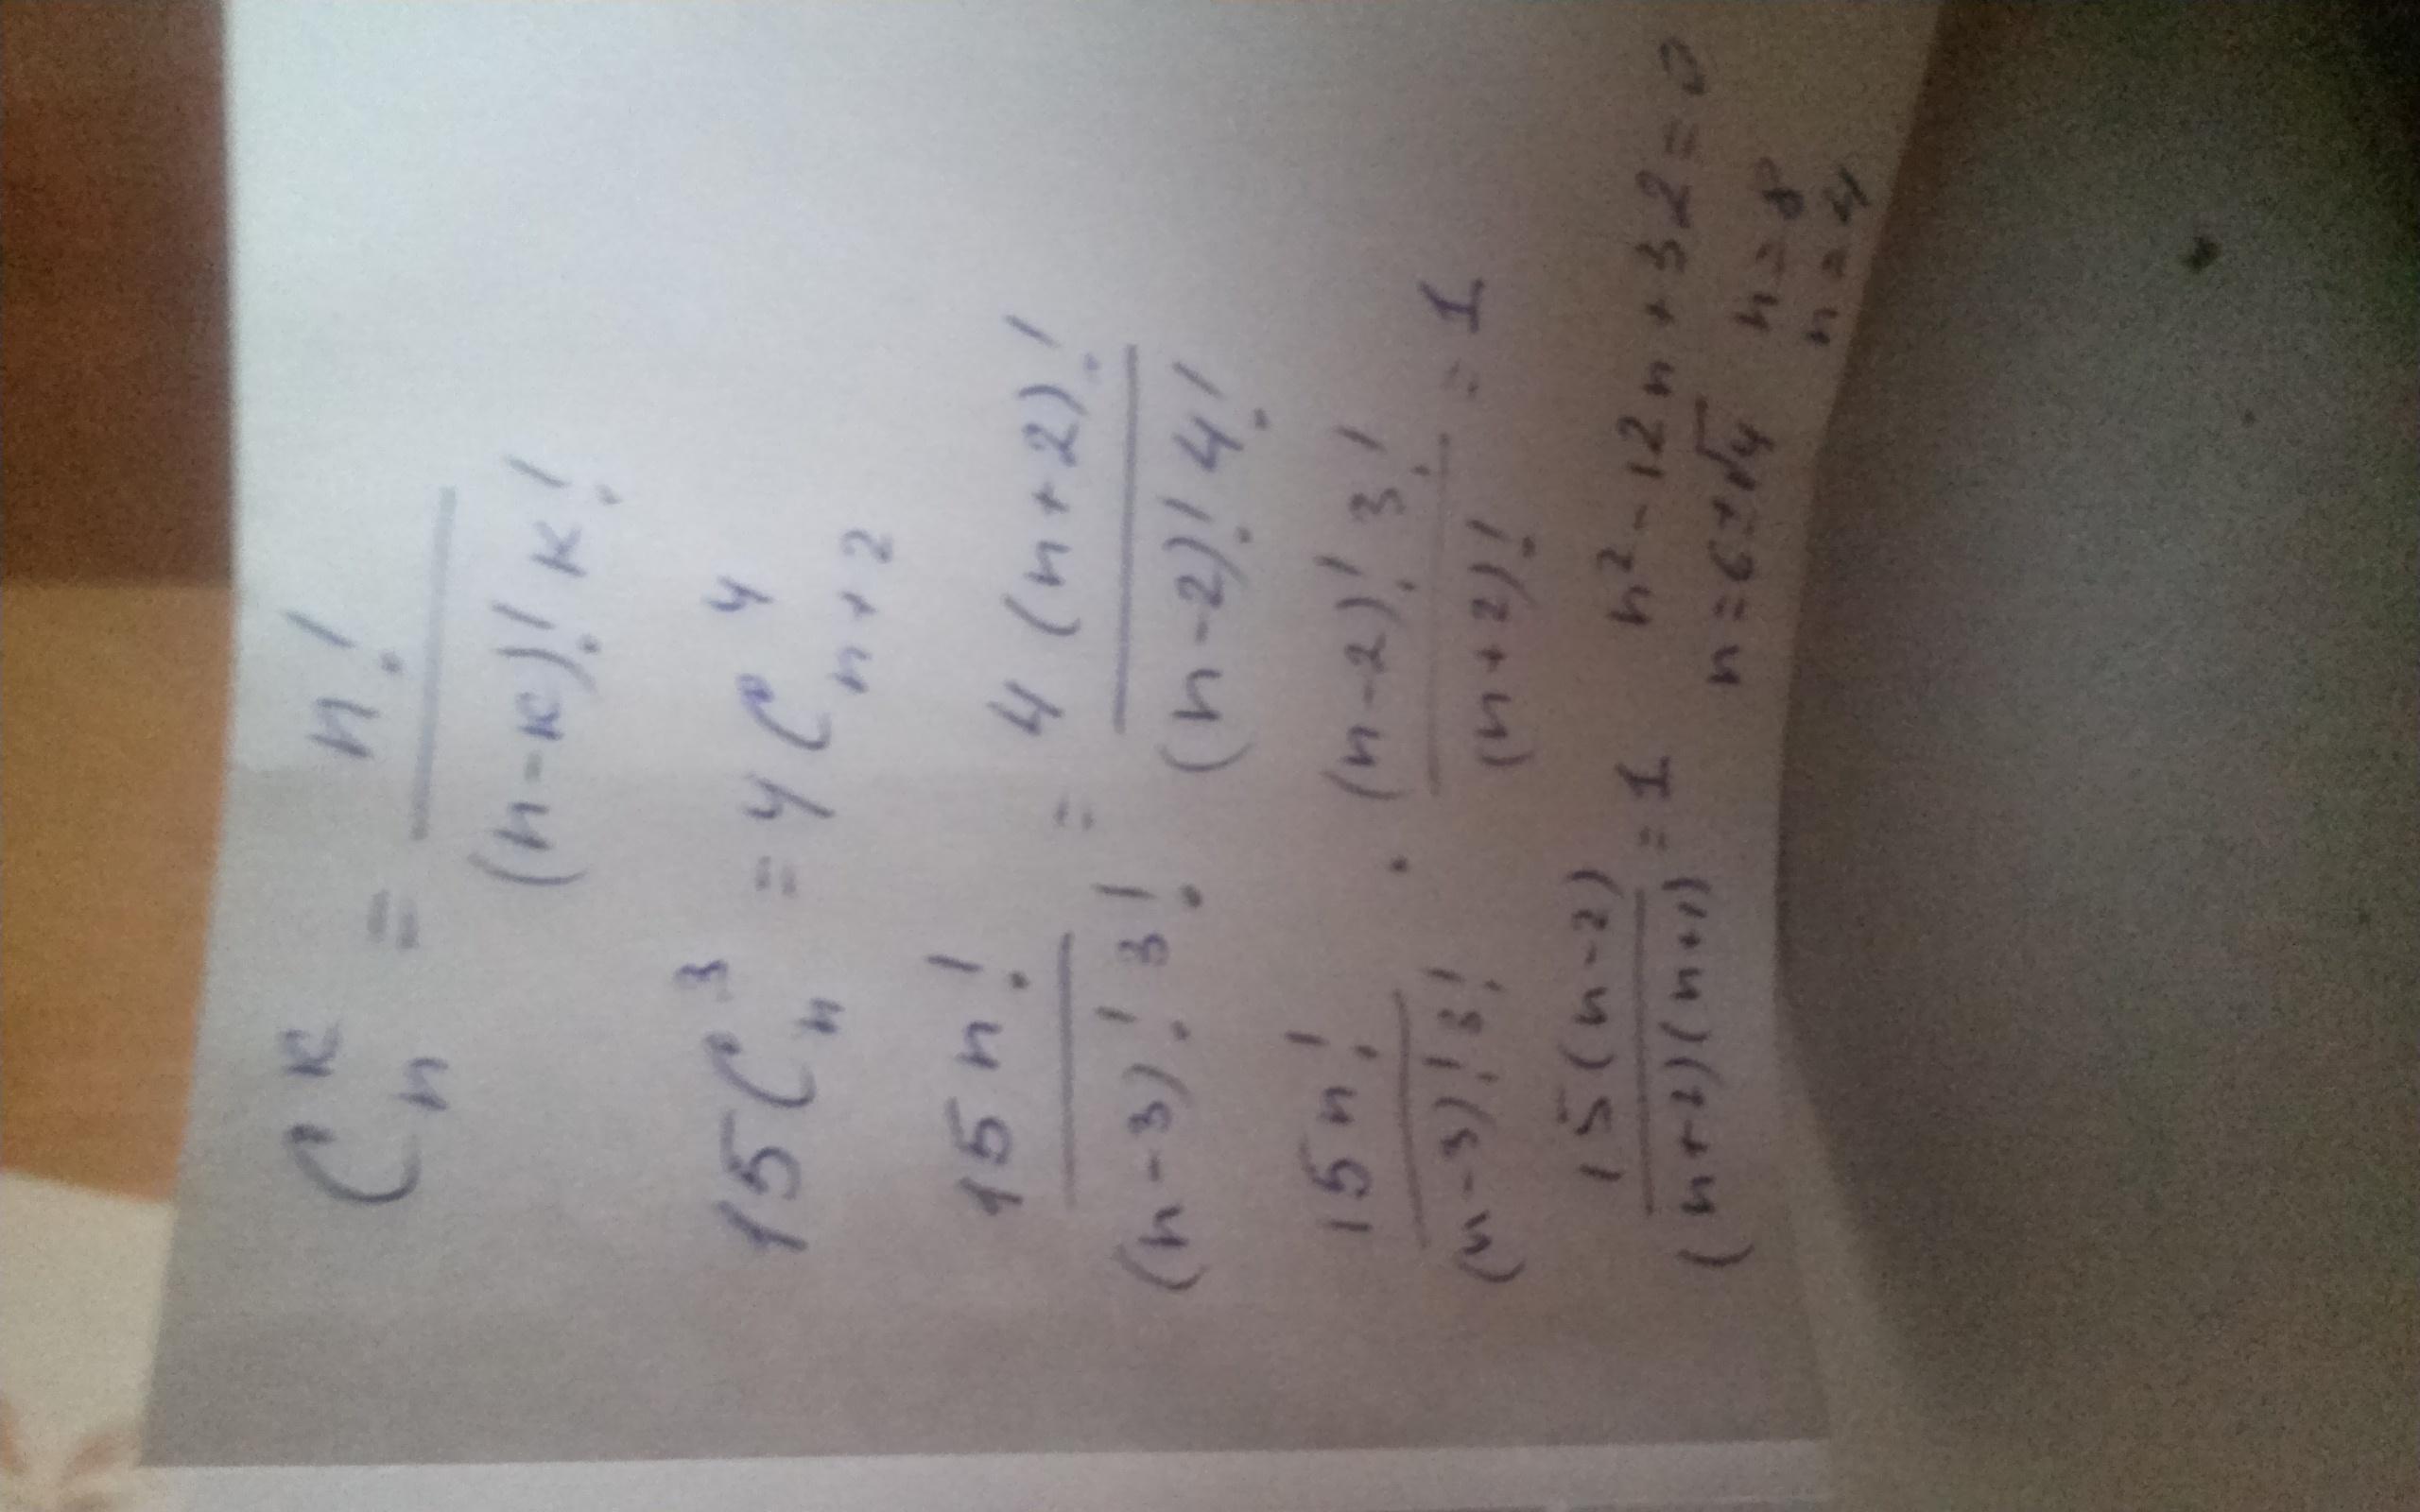 C_n^k = n! / (n-k)! k!
15 C_n^3 = 4 C_{n+2}^4
15 n! / (n-3)! 3! = 4 (n+2)! / (n-2)! 4!
15 n! / (n-3)! 3! · (n-2)! 3! / (n+2)! = 1
15 (n-2) / (n+2)(n+1) = 1
n² - 12n + 32 = 0
n = 6 ± √4
n = 8
n = 4